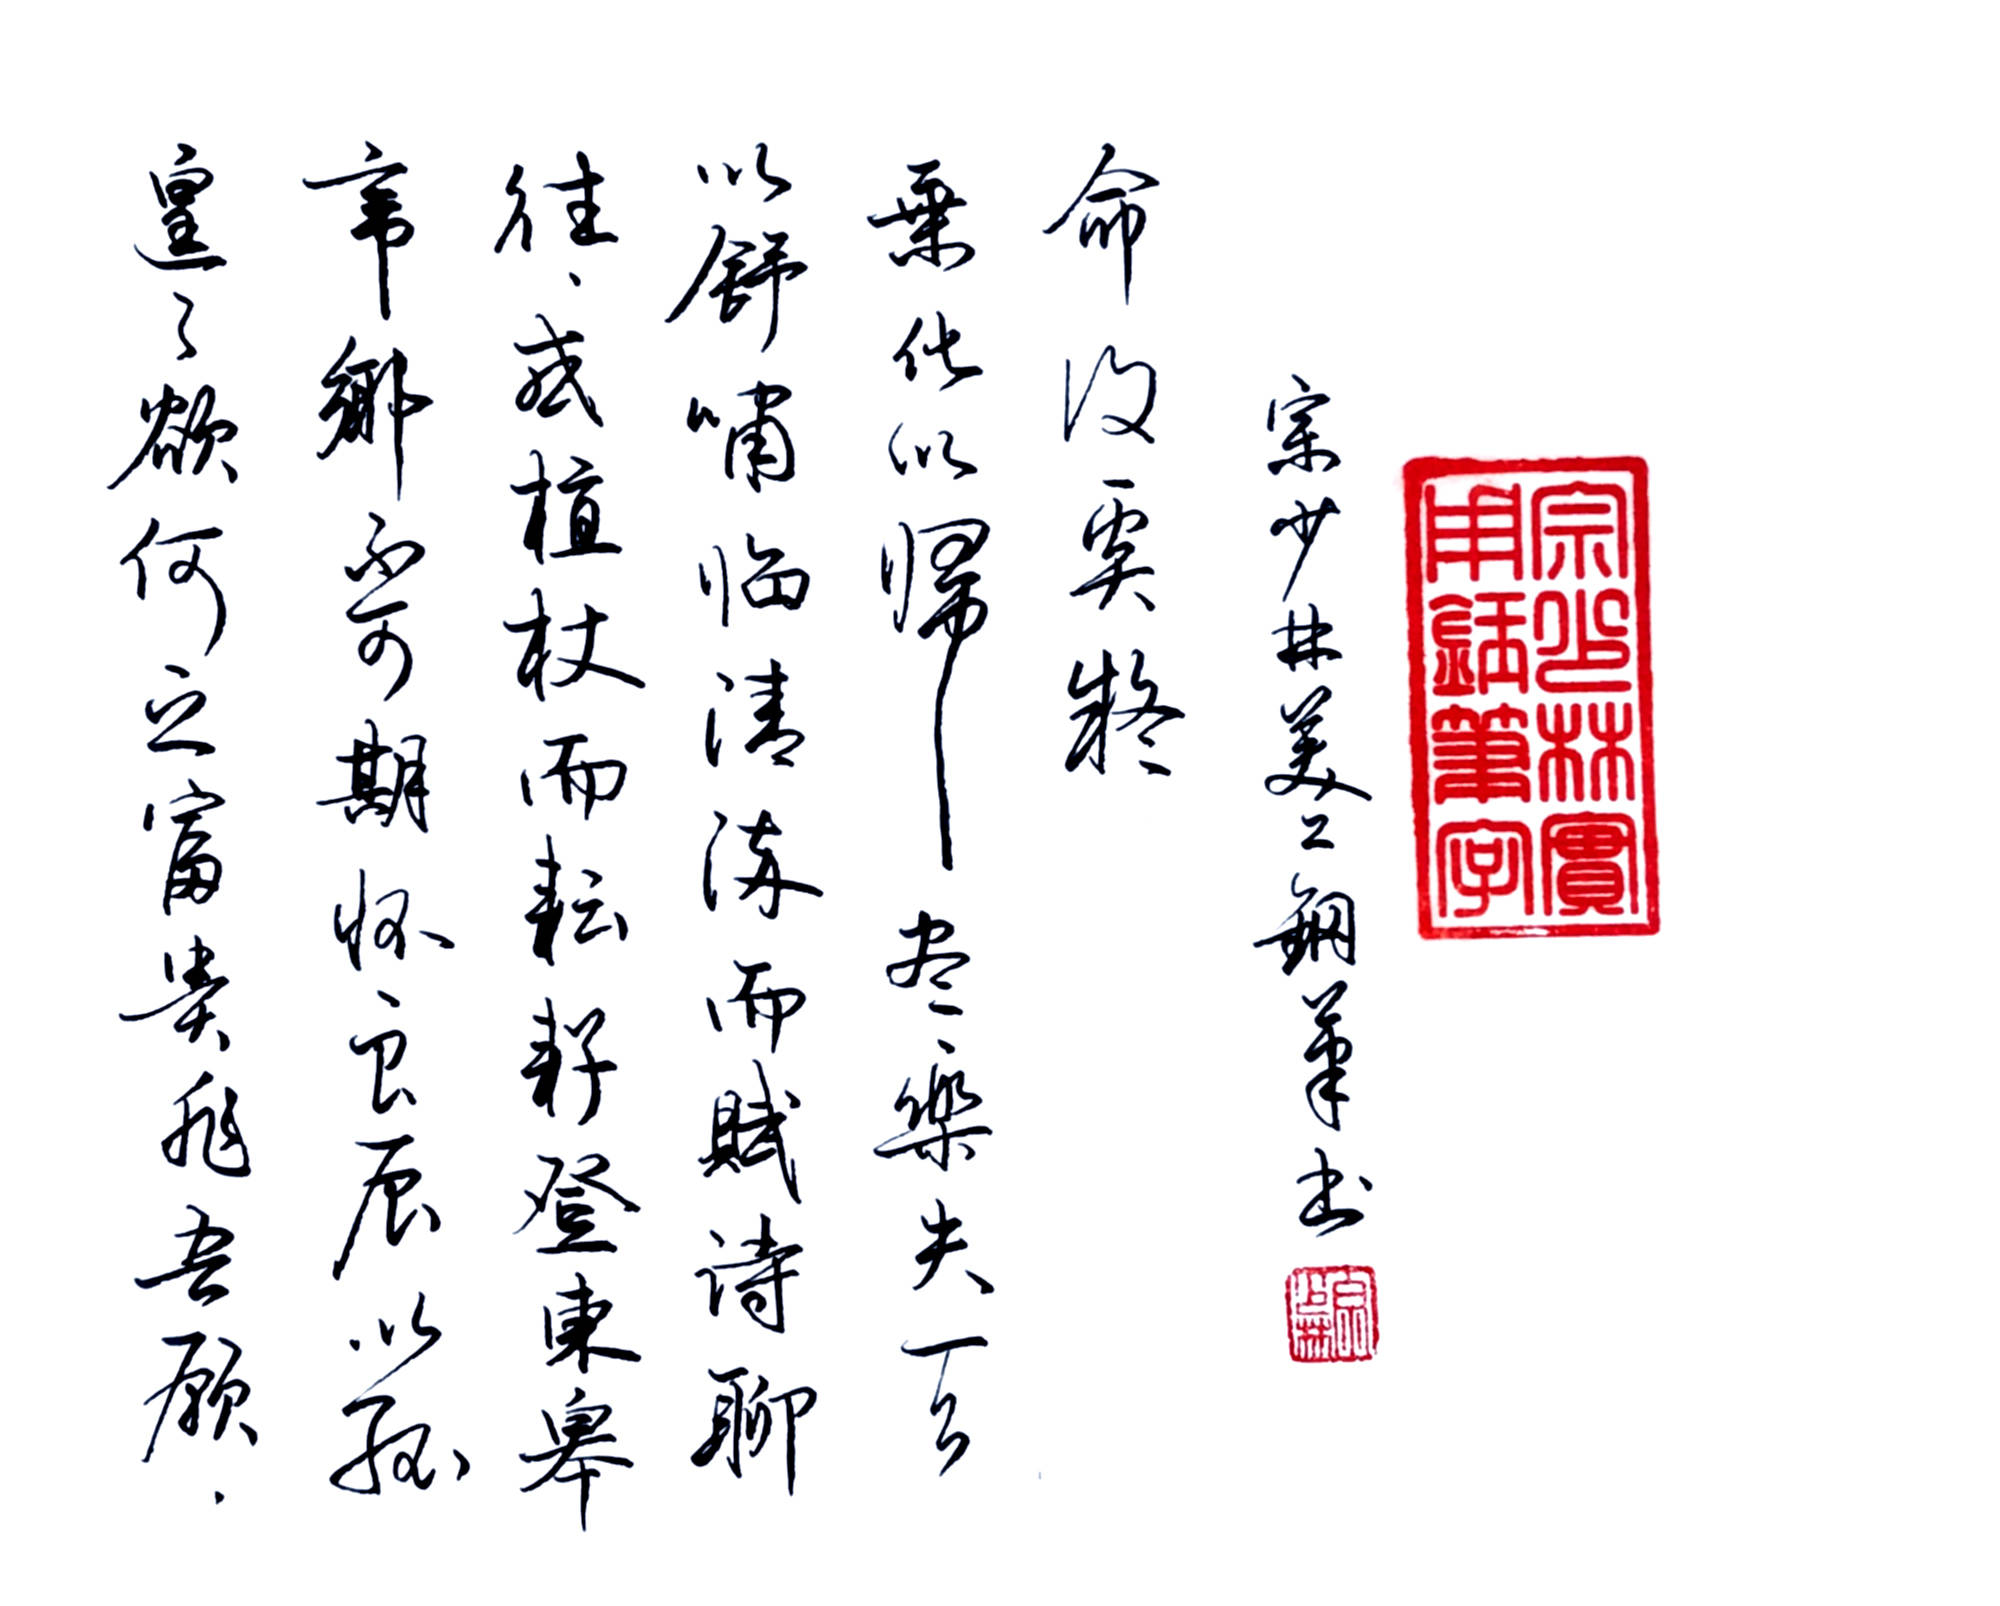 遑々欲何之富贵非吾愿.
帝鄉不可期怀良辰以孤
往、或植杖而耘耔登東皋
以舒嘯临清流而賦诗聊
乘化以帰尽樂夫天
命復奚疑
宗少林美工鋼筆书
宗少林實
用鋼筆字
宗少林